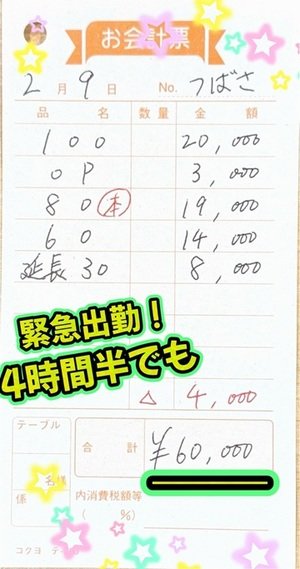 お会計票
2月9日 No. つばさ
品名 数量 金額
100 20,000
OP 3,000
80 本 19,000
60 14,000
延長30 8,000
緊急出勤！
4時間半でも
△ 4,000
テーブル
合計 ¥60,000
名様
係
内消費税額等
(%)
コクヨ テ